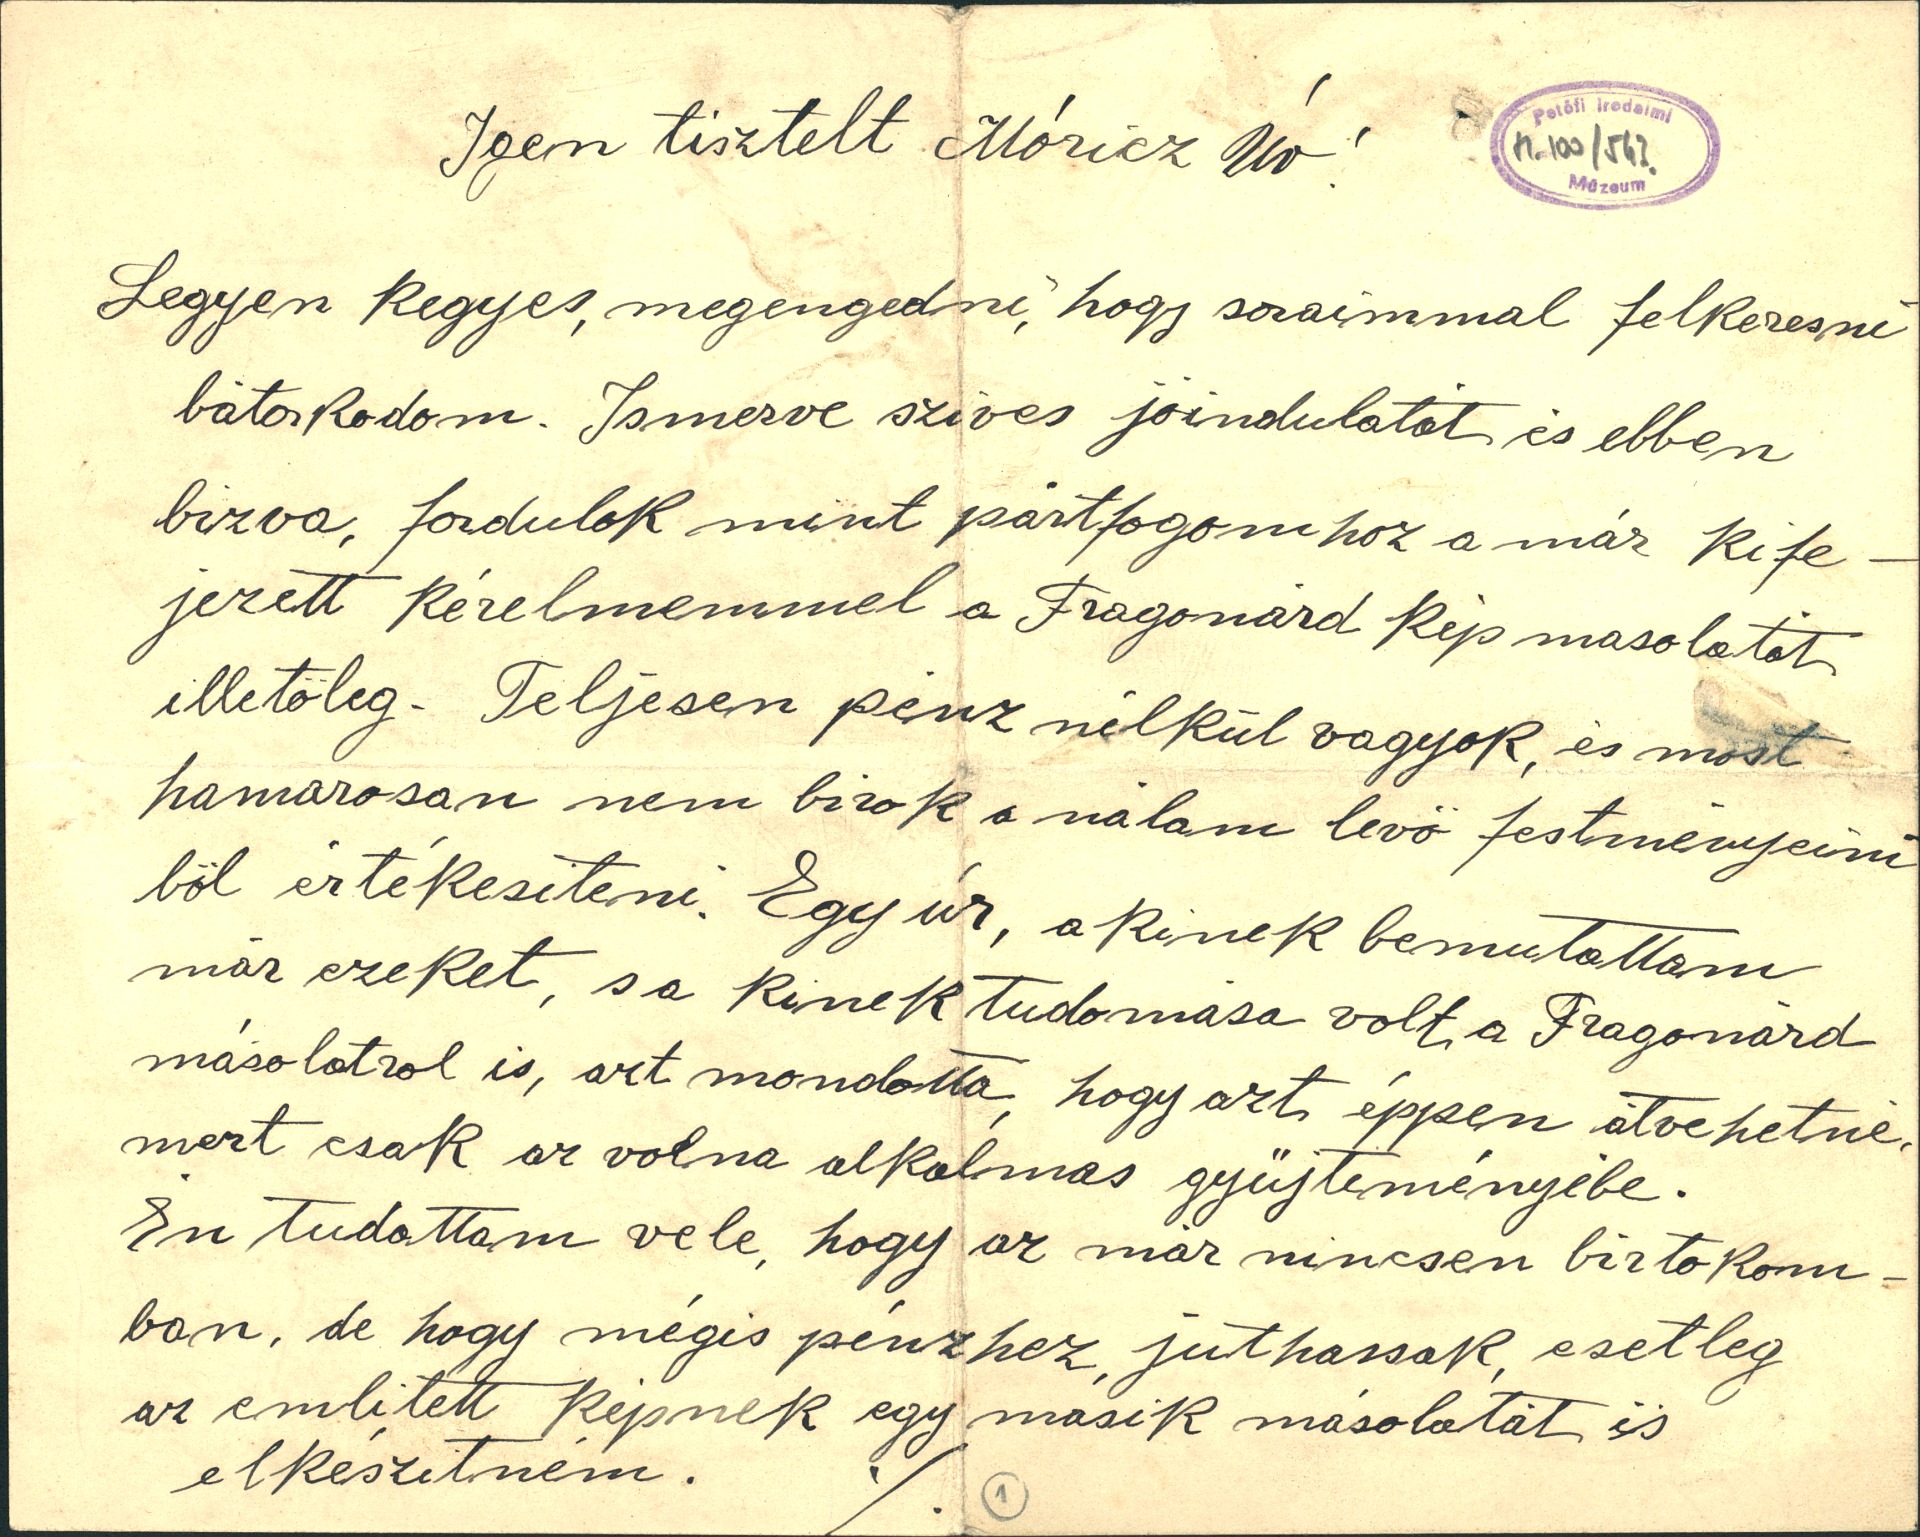 Igen tisztelt Móricz Úr!
Petőfi Irodalmi
Múzeum
Legyen kegyes, megengedni, hogy soraimmal felkeresni
bátorkodom. Ismerve szives jóindulatát és ebben
bizva, fordulok mint pártfogomhoz a már kife-
jezett kérelmemmel a Fragonárd kép masolatát
illetőleg - Teljesen pénz nélkül vagyok, és most
hamarosan nem birok a nálam levő festményeim
ből értékesiteni. Egy úr, a kinek bemutattam
már ezeket, s a kinek tudomása volt, a Fragonárd
másolatrol is, azt mondotta, hogy azt, éppen átvehetné,
mert csak az volna alkalmas gyüjteményébe.
Én tudattam vele, hogy az már nincsen birtokom-
ban, de hogy mégis pénzhez, juthassak, esetleg
az emlitett képnek egy másik másolatát is
elkészitném. ./.
1